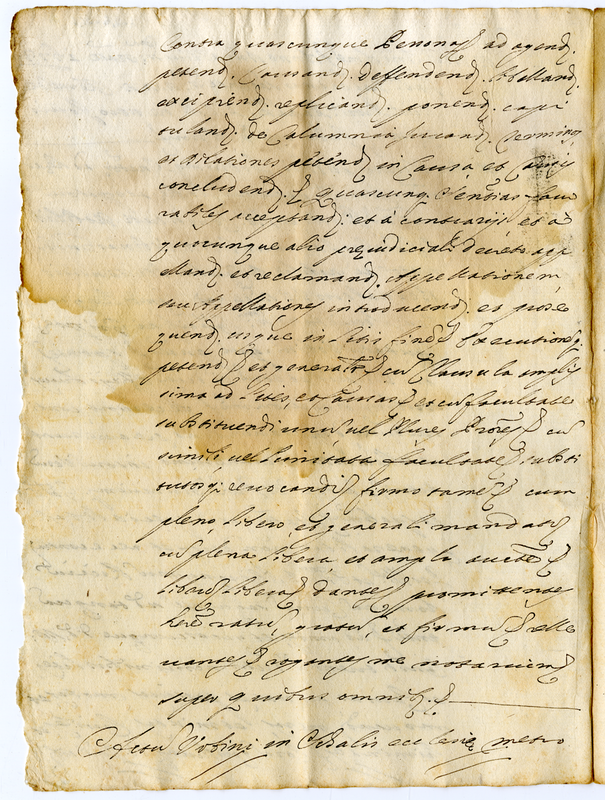 Contra quascunque Personas ad agend.
petend. Causand. deffendend. libelland.
excipiend. replicand. ponend. capi
tuland. de Calumnia Jurand. Termino
et dilationes petend. in Causa, et Causis
concludend. quascunq. Sentias favo
rabiles acceptand. et a contrarijs, et a
quocunque alio prejudiciali decreto app
elland. et reclamand. Appellationem,
seu Appellationes introducend. et prose
quend. usque in litis fine Executioneq.
petend. et general cu Clausula amplis
sima ad lites, et Causas et cu facultate
substituendi unu, vel Plures Procres cu
simili, vel limitata facultate substi
tutosq; revocandi firmo tame cum
pleno, libero, et generali mandato
cu plena libera, et ampla aucte
liberu libera dantes promittentes
here ratu, gratu, et firmu relle
vantes rogantes me notarium
super quibus omnib.
Actu Urbini in Ecclesia metro